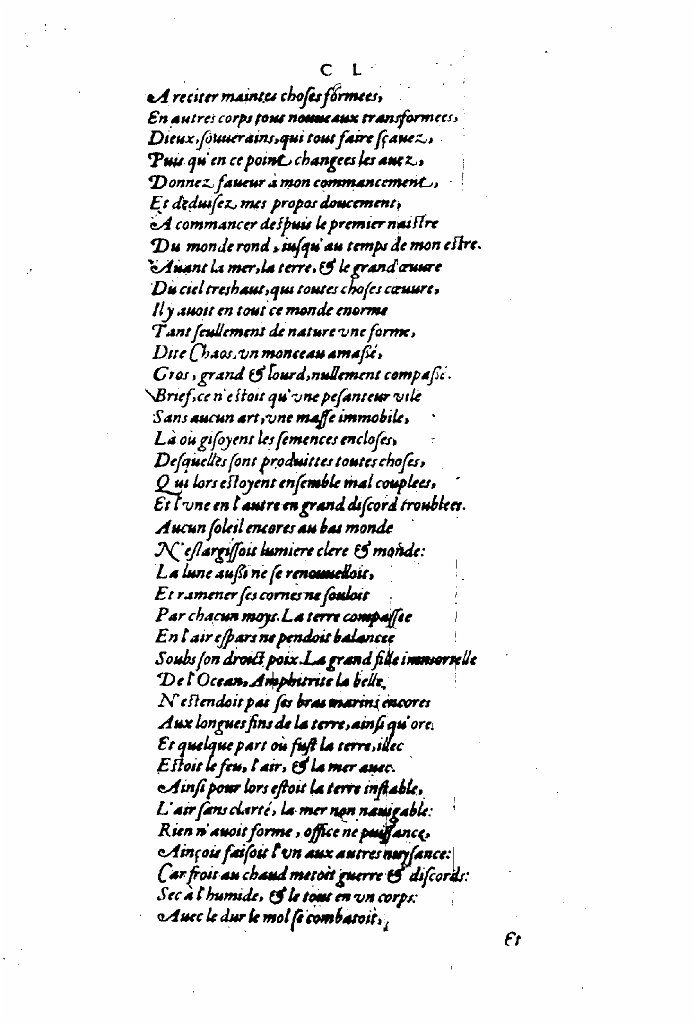 C L
A reciter maintes choſes formees,
En autres corps tous nouueaux transformees,
Dieux, ſouuerains, qui tout faire ſçauez,
Puis qu'en ce point changees les auez,
Donnez faueur à mon commancement,
Et deduiſez mes propos doucement,
A commancer deſpuis le premier naiſtre
Du monde rond, iuſqu'au temps de mon eſtre.
Auant la mer, la terre, & le grand œuure
Du ciel treshaut, qui toutes choſes cœuure,
Il y auoit en tout ce monde enorme
Tant ſeullement de nature vne forme,
Dite Chaos, vn monceau amaſſé,
Gros, grand & lourd, nullement compaſſé.
Brief, ce n'eſtoit qu'vne peſanteur vile
Sans aucun art, vne maſſe immobile,
Là où giſoyent les ſemences encloſes,
Deſquelles ſont produittes toutes choſes,
Qui lors eſtoyent enſemble mal couplees,
Et l'vne en l'autre en grand diſcord troublees.
Aucun ſoleil encores au bas monde
N'eſlargiſſoit lumiere clere & monde:
La lune auſſi ne ſe renouuelloit,
Et ramener ſes cornes ne ſouloit
Par chacun moys. La terre compaſſee
En l'air eſpars ne pendoit balancee
Soubs ſon droict poix. La grand fille immortelle
De l'Ocean, Amphitrite la belle,
N'eſtendoit pas ſes bras marins encores
Aux longues fins de la terre, ainſi qu'ore.
Et quelque part où fuſt la terre, illec
Eſtoit le feu, l'air, & la mer auec.
Ainſi pour lors eſtoit la terre inſtable,
L'air ſans clarté, la mer non nauigable:
Rien n'auoit forme, office ne puiſſance,
Ainçois faiſoit l'vn aux autres nuyſance:
Car froit au chaud metoit guerre & diſcords:
Sec à l'humide, & le tout en vn corps:
Auec le dur le mol ſe combatoit,
Et